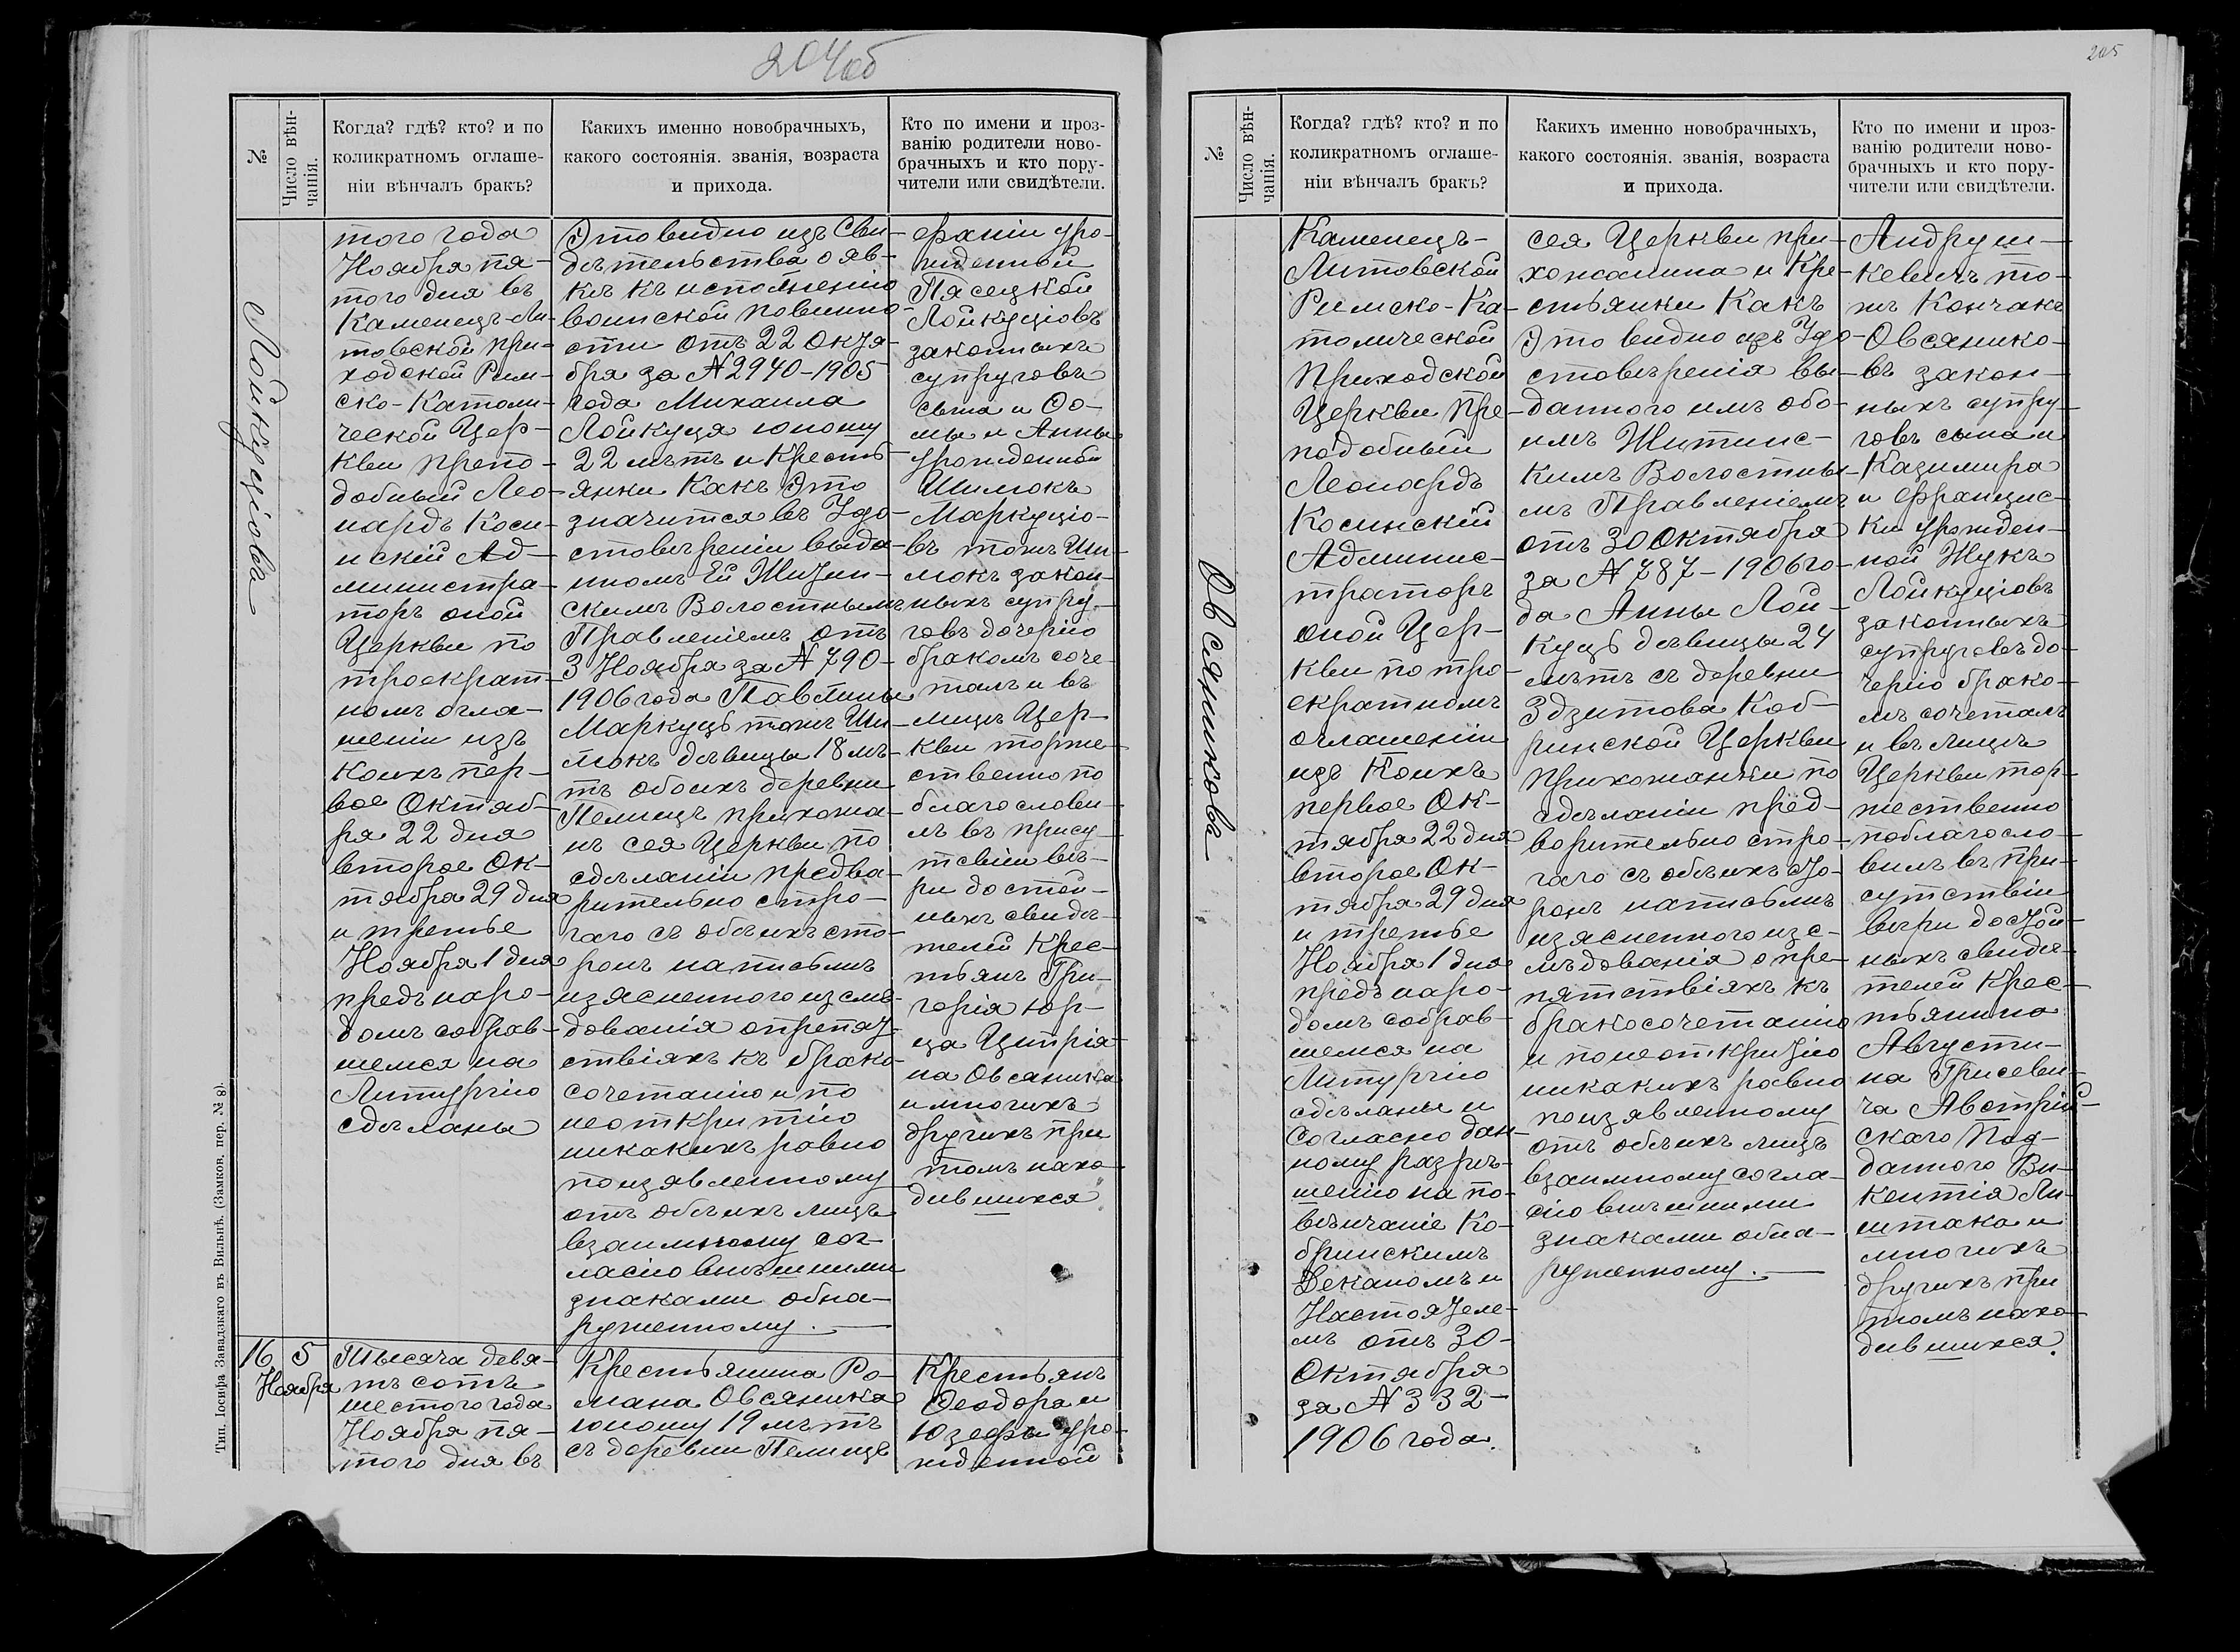 204об
№
Число вѣн-
чанія.
Когда? гдѣ? кто? и по
коликратномъ оглаше-
ніи вѣнчалъ бракъ?
Какихъ именно новобрачныхъ,
какого состоянія. званія, возраста
и прихода.
Кто по имени и проз-
ванію родители ново-
брачныхъ и кто пору-
чители или свидѣтели.
Лойкуціовъ
того года
Ноября пя-
того дня въ
Каменецъ-Ли-
товской при-
ходской Рим-
ско-Католи-
ческой Цер-
кви препо-
добный Лео-
нардъ Коси-
нскій Ад-
министра-
торъ оной
Церкви по
троекрат-
номъ огла-
шеніи изъ
коихъ пер-
вое Октяб-
ря 22 дня
второе Ок-
тября 29 дня
и третье
Ноября 1 дня
предъ наро-
домъ собрав-
шемся на
Литургію
сдѣланы
Это видно изъ Сви-
дѣтельства о яв-
кѣ къ исполненію
воинской повинно-
сти отъ 22 Октя-
бря за № 2940-1905
года Михаила
Лойкуця юношу
22 лѣтъ и Кресть-
янки Какъ Это
значится въ Удо-
стовѣреніи выда-
нномъ Ей Житин-
скимъ Волостнымъ
Правленіемъ отъ
3 Ноября за № 790-
1906 года Павлины
Маркуць тожъ Ши-
мокъ дѣвицы 18 лѣ-
тъ обоихъ деревни
Пелищъ прихожа-
нъ сея Церкви по
сдѣланіи предва-
рительно стро-
гаго съ обѣихъ сто-
ронъ на письмѣ
изясненного излѣ-
дованія опрепят-
ствіяхъ къ брако-
сочетанію и по
неоткритію
никакихъ равно
по изявленному
отъ обѣихъ лицъ
взаимному сог-
ласію внѣшними
знаками обна-
руженному. —
ефаніи уро-
жденной
Пясецкой
Лойкуціовъ
законныхъ
супруговъ
сына и Фо-
мы и Анны
урожденной
Шимокъ
Маркуціо-
въ тожъ Ши-
мокъ закон-
ныхъ супру-
говъ дочерію
бракомъ соче-
талъ и въ
лицѣ Цер-
кви торже-
ственно по
благослови-
лъ въ прису-
тсвіи вѣ-
ри достой-
ныхъ свидѣ-
телей Крес-
тьянъ Гри-
горія Юр-
ца Ципріа-
на Овсаника
и многихъ
другихъ при
томъ нахо-
дившихся
16. 5
Ноября
Тысяча девя-
тъ сотъ
шестого года
Ноября пя-
того дня въ
Крестьянина Ро-
мана Овсяника
юношу 19 лѣтъ
съ деревни Пелищъ
Крестьянъ
Ѳеодора и
Юзефы уро-
жденной
Тип. Іосифа Завадзкаго въ Вильнѣ. (Замков. пер. № 8).
205
№
Число вѣн-
чанія.
Когда? гдѣ? кто? и по
коликратномъ оглаше-
ніи вѣнчалъ бракъ?
Какихъ именно новобрачныхъ,
какого состоянія. званія, возраста
и прихода.
Кто по имени и проз-
ванію родители ново-
брачныхъ и кто пору-
чители или свидѣтели.
Овсяниковъ
Каменецъ-
Литовской
Римско-Ка-
толической
Приходской
Церкви Пре-
подобный
Леонардъ
Косинскій
Админис-
траторъ
оной Цер-
кви по тро-
екратномъ
оглашеніи
изъ Коихъ
первое Ок-
тября 22 дня
второе Ок-
тября 29 дня
и третье
Ноября 1 дня
предъ наро-
домъ собрав-
шемся на
Литургію
сдѣланы и
Согласно дан-
ному разрѣ-
шенію на по-
вѣнчаніе Ко-
бринскимъ
Деканомъ и
НастояТеле-
мъ отъ 30-
Октября
за № 332-
1906 года.
сея Церкви при-
хожанина и Кре-
стьянки Какъ
Это видно изъ Удо-
стовѣренія вы-
данного имъ обо-
имъ Житинс-
кимъ Волостны-
мъ Правленіемъ
отъ 30 Октября
за № 787-1906 го-
да Анны Лой-
куць дѣвицы 24
лѣтъ съ деревни
Здзитова Коб-
ринской Церкви
прихожанки по
сдѣланіи пред-
ворительно стро-
гаго съ обѣихъ сто-
ронъ написьмѣ
изясненного изс-
лѣдованія о пре-
пятствіяхъ къ
бракосочетанію
и по неоткритію
никакихъ равно
по изявленному
отъ обѣихъ лицъ
взаимному согла-
сію внѣшними
знаками обна-
руженному. —
Андруш-
кевичъ то-
жъ Кончакъ
Овсянико-
въ закон-
ныхъ супру-
говъ сына и
Казимира
и Францис-
ки урожден-
ной Жукъ
Лойкуціовъ
законныхъ
супруговъ до-
черію брако-
мъ сочеталъ
и въ лицѣ
Церкви тор-
жественно
поблагосло-
вилъ въ при-
сутствіи
вѣри достой-
ныхъ свидѣ-
телей Крес-
тьянина
Августи-
на Грисеви-
ча Австрій-
скаго Под-
данного Ви-
кентія Ли-
штака и
многихъ
другихъ при
томъ нахо-
дившихся.